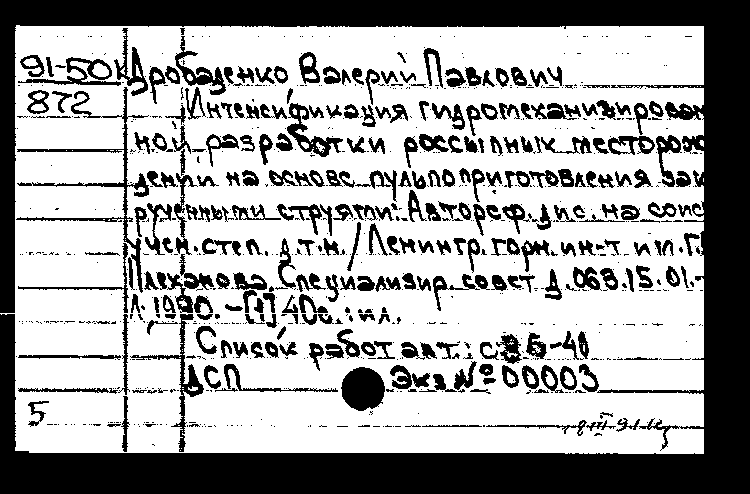 91-50к Дробаденко Валерий Павлович
872 Интенсификация гидромеханизирован
ной разработки россыпных месторож
дений на основе пульпоприготовления зак
рученными струями: Автореф. дис. на соис
учен. степ. д.т.н. / Ленингр. горн. ин-т им. Г.
Плеханова. Специализир. совет Д.063.15.01.-
Л., 1990. - [1] 40с. : ил.
Список работ авт.: с. 35-40
ДСП Экз № 00003
5